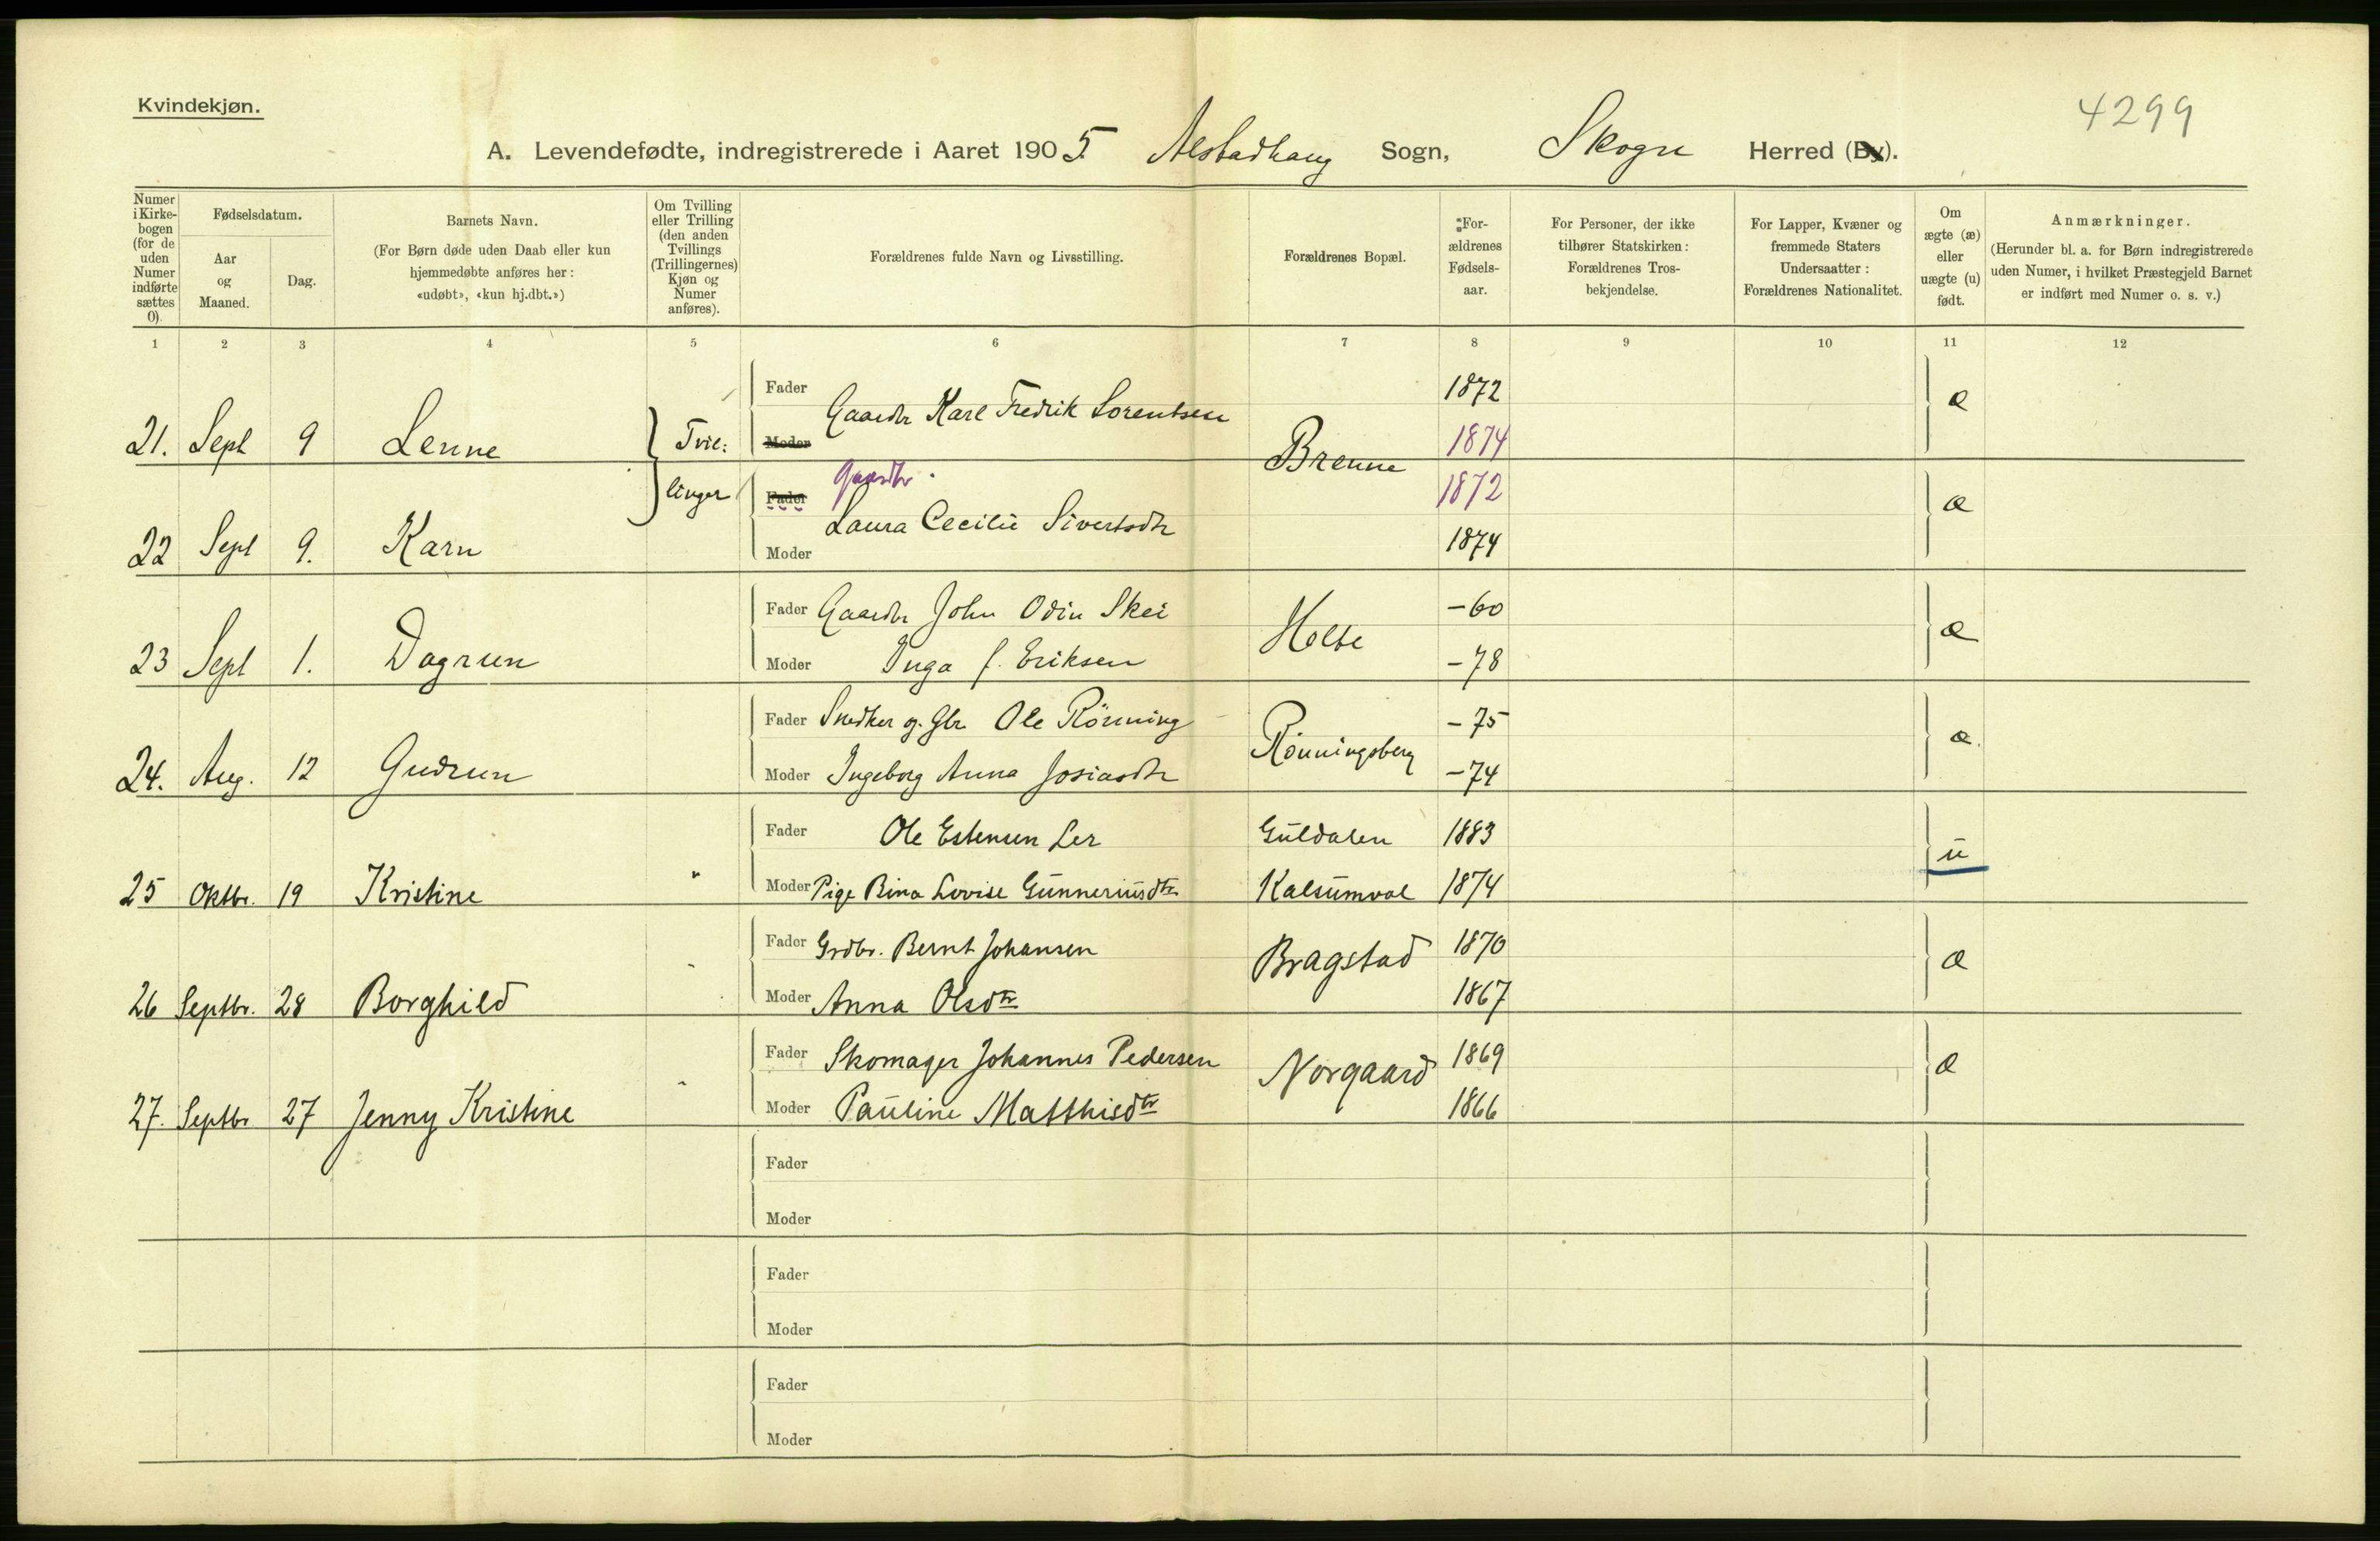 Kvindekjøn.
4299
A. Levendefødte, indregistrerede i Aaret 1905. Alstadhaug Sogn, Skogn Herred (By).
Numer i Kirkebogen (for de uden Numer indførte sættes 0).
Fødselsdatum.
Aar og Maaned.
Dag.
Barnets Navn.
(For Børn døde uden Daab eller kun hjemmedøbte anføres her: «udøbt», «kun hj.dbt.»)
Om Tvilling eller Trilling (den anden Tvillings (Trillingernes) Kjøn og Numer anføres).
Forældrenes fulde Navn og Livsstilling.
Forældrenes Bopæl.
Forældrenes Fødselsaar.
For Personer, der ikke tilhører Statskirken: Forældrenes Trosbekjendelse.
For Lapper, Kvæner og fremmede Staters Undersaatter: Forældrenes Nationalitet.
Om ægte (æ) eller uægte (u) født.
Anmærkninger.
(Herunder bl. a. for Børn indregistrerede uden Numer, i hvilket Præstegjeld Barnet er indført med Numer o. s. v.)
1 2 3 4 5 6 7 8 9 10 11 12
Fader Gaardbr Karl Fredrik Lorentsen 1872 æ
21. Sept 9 Lenne Tvil: Moder Brenne 1874
linger Fader Gaardbr. 1872 æ
22 Sept 9. Karn Moder Laura Cecilie Sivertsdtr 1874
Fader Gaardbr John Odin Skei Holte -60 æ
23 Sept 1. Dagrun Moder Inga f. Eriksen -78
Fader Snedker og Gbr Ole Rönning Rönningsberg -75 æ.
24. Aug. 12 Gudrun Moder Ingeborg Anna Josiasdtr -74
Fader Ole Estensen Ler Guldalen 1883 u
25 Oktbr. 19 Kristine " Moder Pige Bina Lovise Gunneriusdtr Kalsumval 1874
Fader Grdbr. Bernt Johansen Bragstad 1870 æ
26 Septbr. 28 Borghild " Moder Anna Olsdtr 1867
Fader Skomager Johannes Pedersen Norgaard 1869 æ
27. Septbr 27 Jenny Kristine " Moder Pauline Matthisdtr 1866
Fader
Moder
Fader
Moder
Fader
Moder